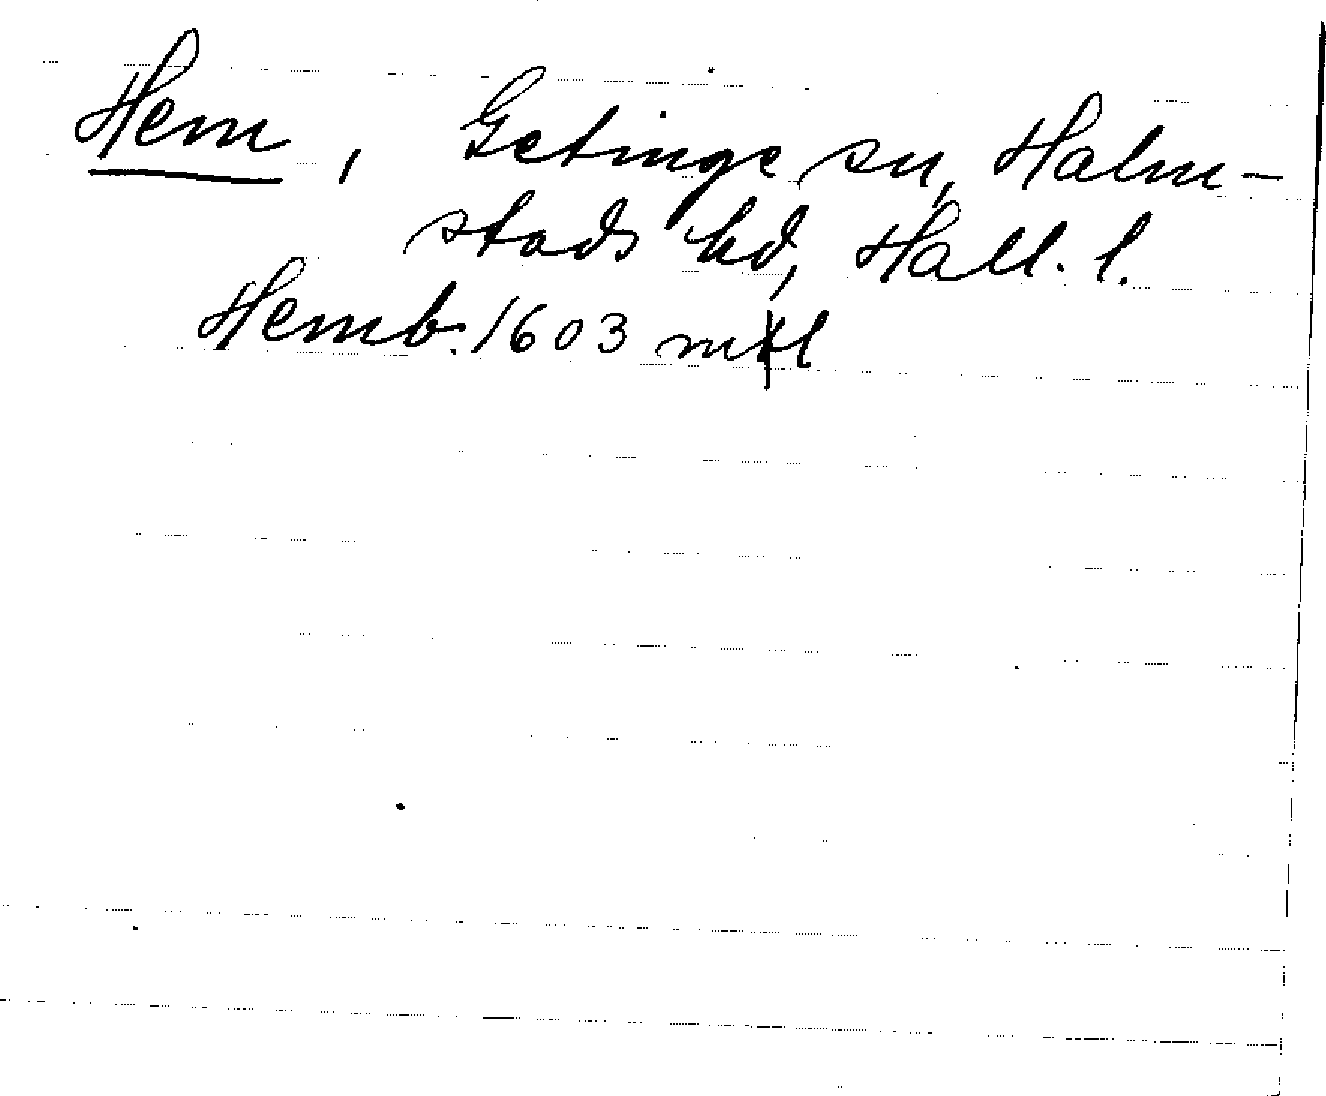 Hem, Getinge sn, Halm-
stads hd, Hall. l.
Hemb. 1603 mtl